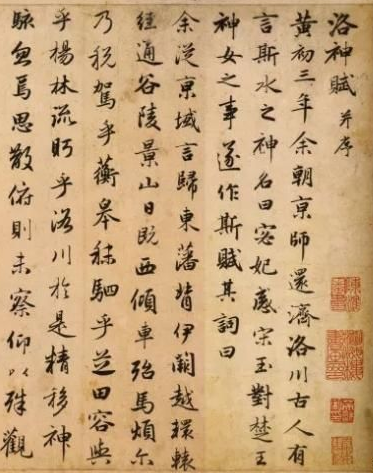 洛神賦 并序
黃初三年余朝京師還濟洛川古人有
言斯水之神名曰宓妃感宋玉對楚王
神女之事遂作斯賦其詞曰
余從京域言歸東藩背伊闕越轘轅
經通谷陵景山日既西傾車殆馬煩尔
乃税駕乎蘅皋秣駟乎芝田容與
乎楊林流眄乎洛川於是精移神
駭忽焉思散俯則未察仰以殊觀